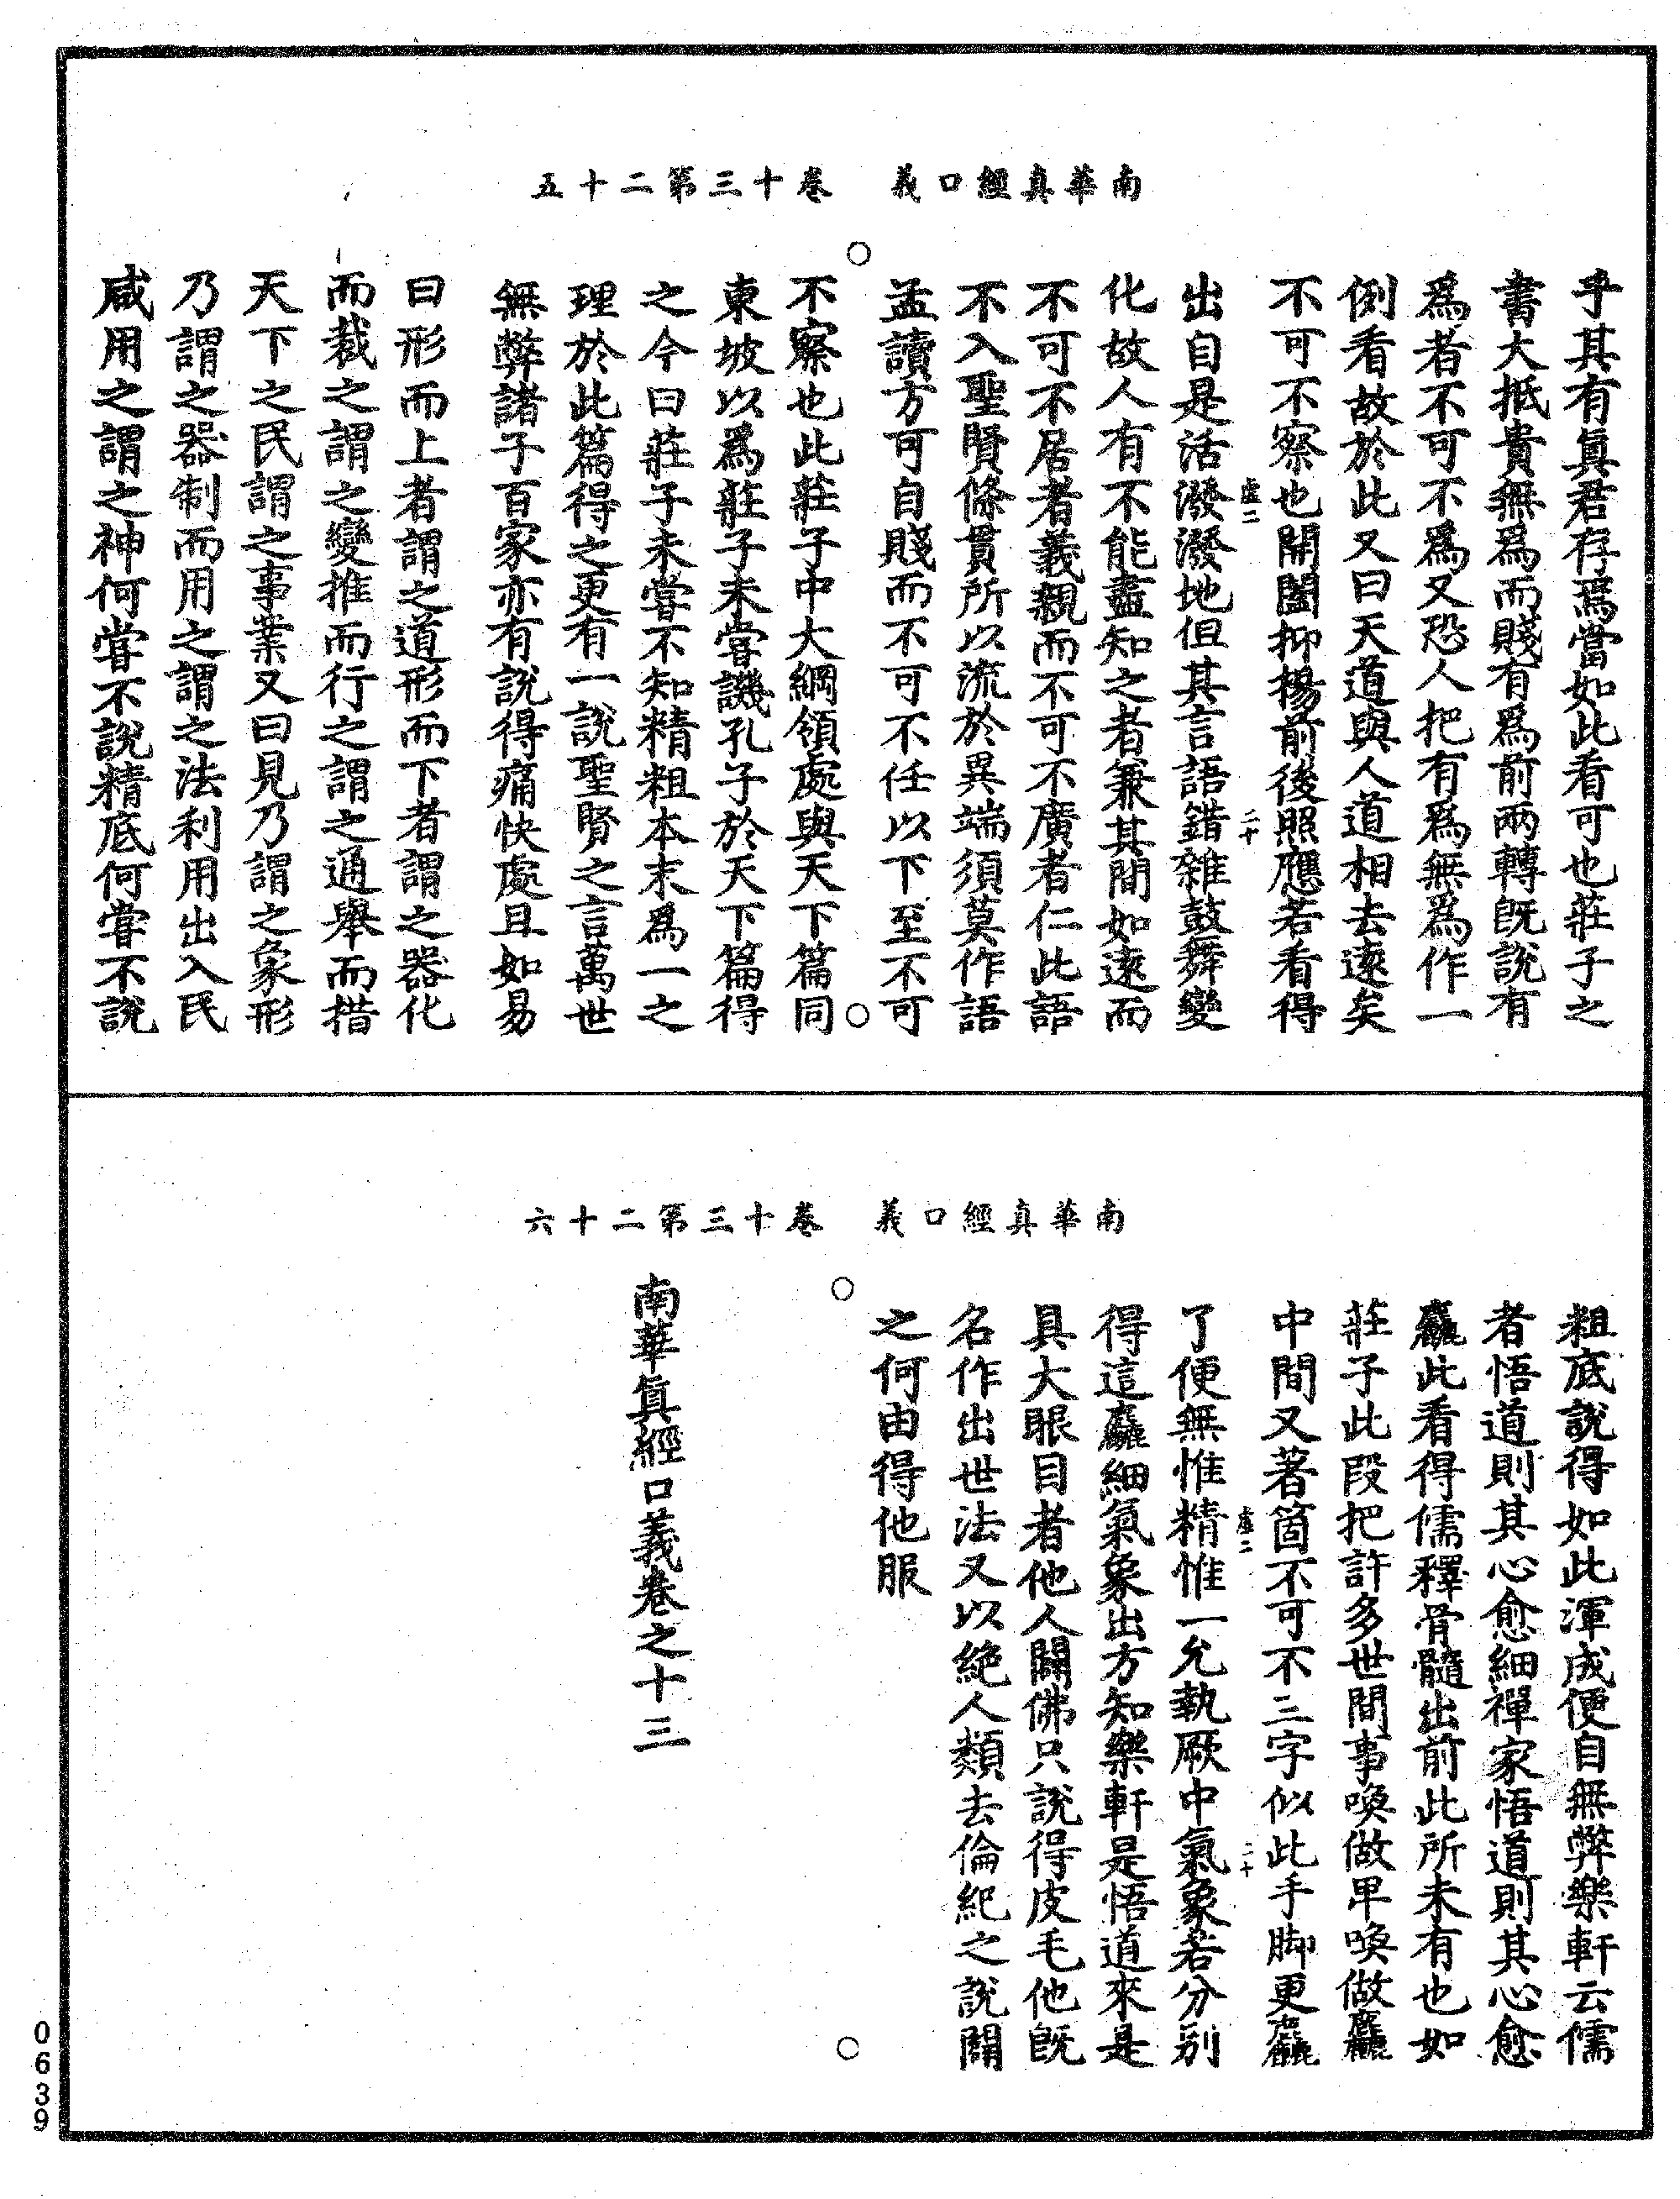 南華真經口義　卷十三第二十五
乎其有眞君存焉當如此看可也莊子之
書大抵貴無爲而賤有爲前兩轉既說有
爲者不可不爲又恐人把有爲無爲作一
例看故於此又曰天道與人道相去遠矣
不可不察也開闔抑揚前後照應若看得
虛二　二十
出自是活潑潑地但其言語錯雜鼓舞變
化故人有不能盡知之者兼其間如遠而
不可不居者義親而不可不廣者仁此語
不入聖賢條貫所以流於異端須莫作語
孟讀方可自賤而不可不任以下至不可
不察也此莊子中大綱領處與天下篇同
東坡以爲莊子未嘗譏孔子於天下篇得
之今曰莊子未嘗不知精粗本末爲一之
理於此篇得之更有一說聖賢之言萬世
無弊諸子百家亦有說得痛快處且如易
曰形而上者謂之道形而下者謂之器化
而裁之謂之變推而行之謂之通舉而措
天下之民謂之事業又曰見乃謂之象形
乃謂之器制而用之謂之法利用出入民
咸用之謂之神何嘗不說精底何嘗不說
南華真經口義　卷十三第二十六
粗底說得如此渾成便自無弊樂軒云儒
者悟道則其心愈細禪家悟道則其心愈
麤此看得儒釋骨髓出前此所未有也如
莊子此段把許多世間事喚做卑喚做麤
中間又著箇不可不三字似此手腳更麤
虛二　二十
了便無惟精惟一允執厥中氣象若分別
得這麤細氣象出方知樂軒是悟道來是
具大眼目者他人闢佛只說得皮毛他既
名作出世法又以絕人類去倫紀之說闢
之何由得他服
南華眞經口義卷之十三
0639